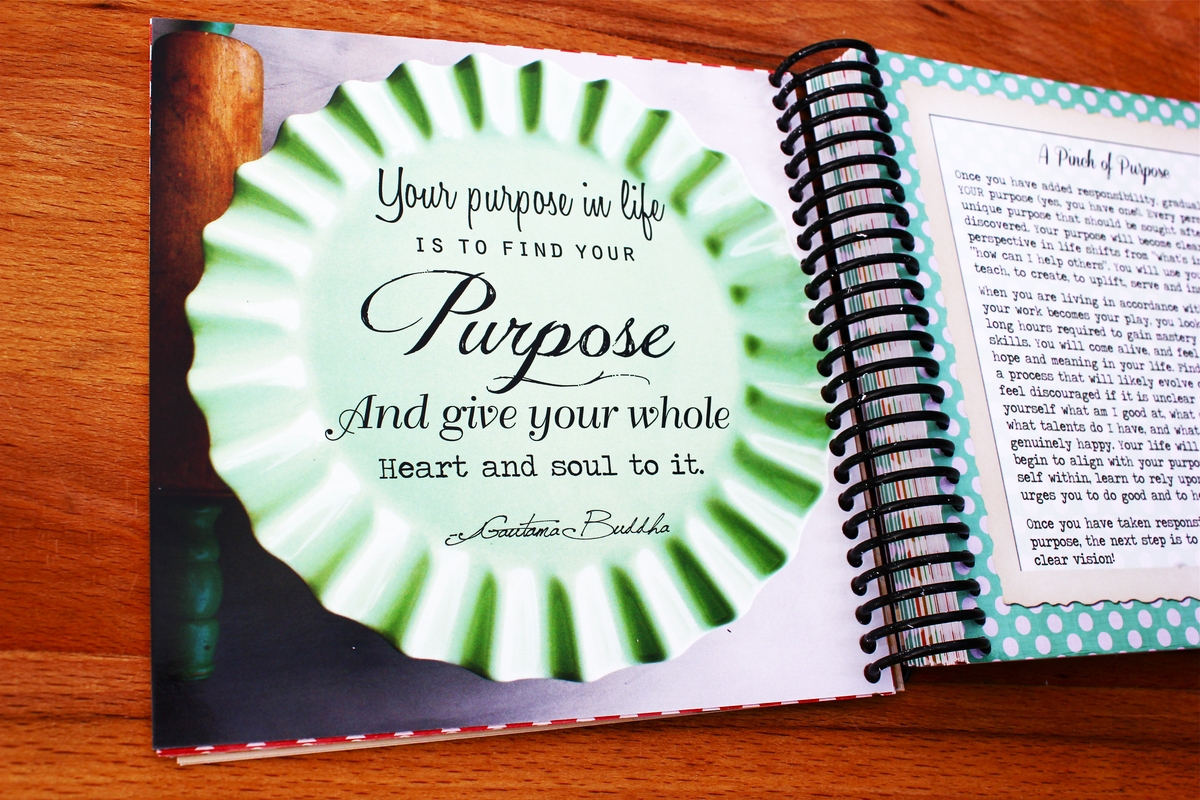 Your purpose in life
IS TO FIND YOUR
Purpose
And give your whole
Heart and soul to it.
-Gautama Buddha
A Pinch of Purpose
Once you have added responsibility,
YOUR purpose (yes, you have one). Every
unique purpose that should be sought
discovered. Your purpose will become
perspective in life shifts from "what's
"how can I help others". You will use
teach, to create, to uplift, serve and
When you are living in accordance
your work becomes your play, you
long hours required to gain mastery
skills. You will come alive, and feel
hope and meaning in your life.
a process that will likely evolve
feel discouraged if it is unclear
yourself what am I good at, what
what talents do I have, and what
genuinely happy. Your life will
begin to align with your
self within, learn to rely
urges you to do good and to
Once you have taken
purpose, the next step is to
clear vision!